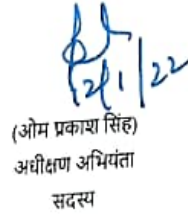 12/1/22
(ओम प्रकाश सिंह)
अधीक्षण अभियंता
सदस्य